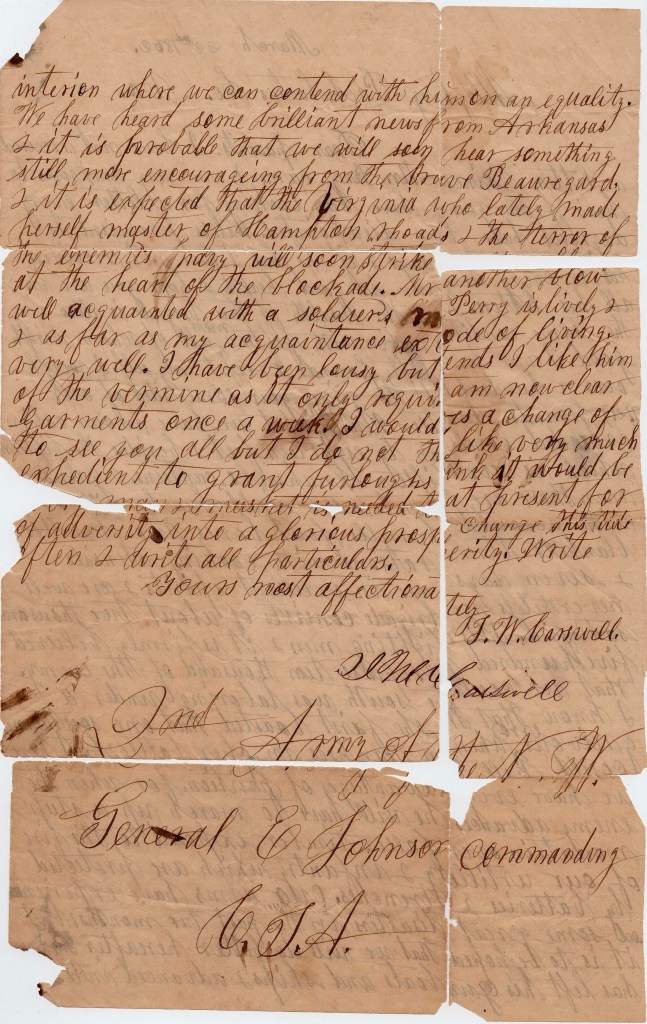 March 1862.
interior where we can contend with him on an equality.
We have heard some brilliant news from Arkansas
& it is probable that we will soon hear something
still more encourageing from the brave Beauregard,
& it is expected that the Virginia who lately made
herself master of Hampton rhoads & the terror of
the enemies navy will soon strike another blow
at the heart of the blockade. Mr Perry is lively &
well acquainted with a soldiers mode of living.
& as far as my acquaintance extends I like him
very well. I have been lousy but am now clear
of the vermine as it only requires a change of
garments once a week. I would like very much
to see you all but I do not think it would be
expedient to grant furloughs at present for
musket is needed change this tide
of adversity into a glorious prosperity. Write
often & write all particulars.
Yours most affectionately
J. W. Carswell.
Carswell
2nd Army of the N. W.
General E Johnson Commanding
C. S. A.